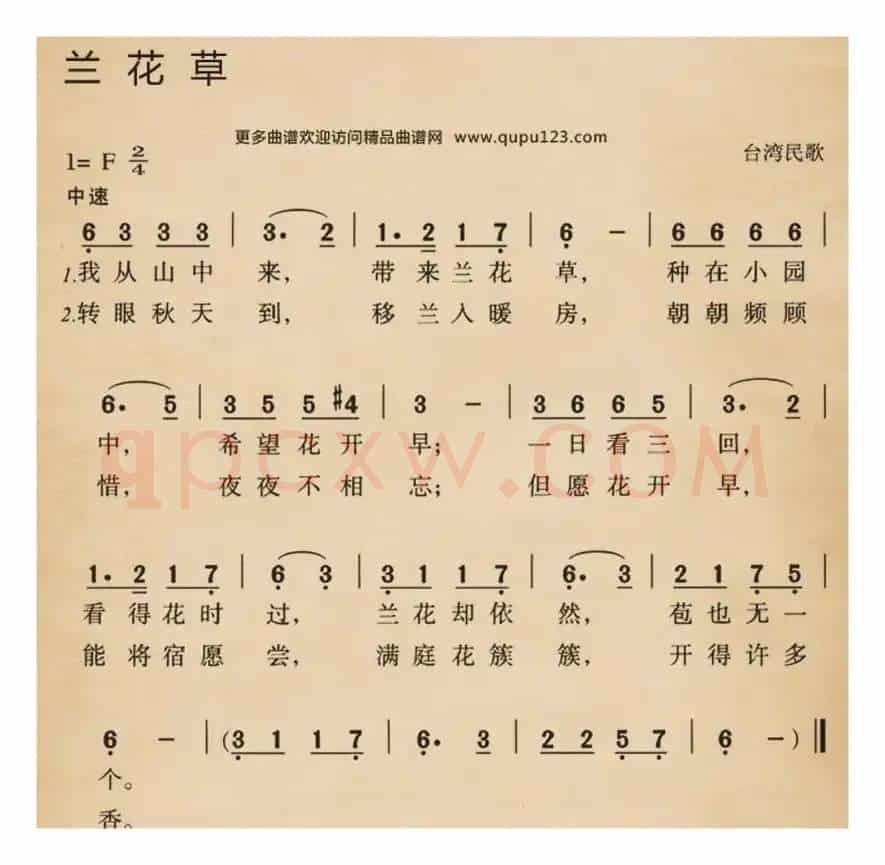 兰花草
更多曲谱欢迎访问精品曲谱网 www.qupu123.com
1= F 2/4
台湾民歌
中速
6 3 3 3 | 3. 2 | 1. 2 1 7 | 6 – | 6 6 6 6 |
1.我从山中 来， 带来兰花 草， 种在小园
2.转眼秋天 到， 移兰入暖 房， 朝朝频顾
6. 5 | 3 5 5 #4 | 3 – | 3 6 6 5 | 3. 2 |
中， 希望花开 早； 一日看三 回，
惜， 夜夜不相 忘； 但愿花开 早，
qpcxw.com
1. 2 1 7 | 6 3 | 3 1 1 7 | 6. 3 | 2 1 7 5 |
看得花时 过， 兰花却依 然， 苞也无一
能将宿愿 尝， 满庭花簇 簇， 开得许多
6 – | (3 1 1 7 | 6. 3 | 2 2 5 7 | 6 –) ‖
个。
香。